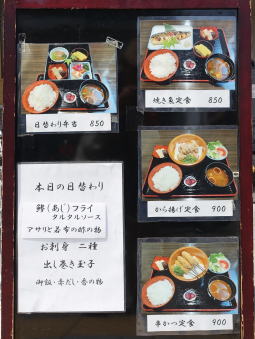 日替わり弁当 850
焼き魚定食 850
から揚げ定食 900
串かつ定食 900
本日の日替わり
鯵(あじ)フライ
タルタルソース
アサリと若布の酢の物
お刺身 二種
出し巻き玉子
御飯・赤だし・香の物